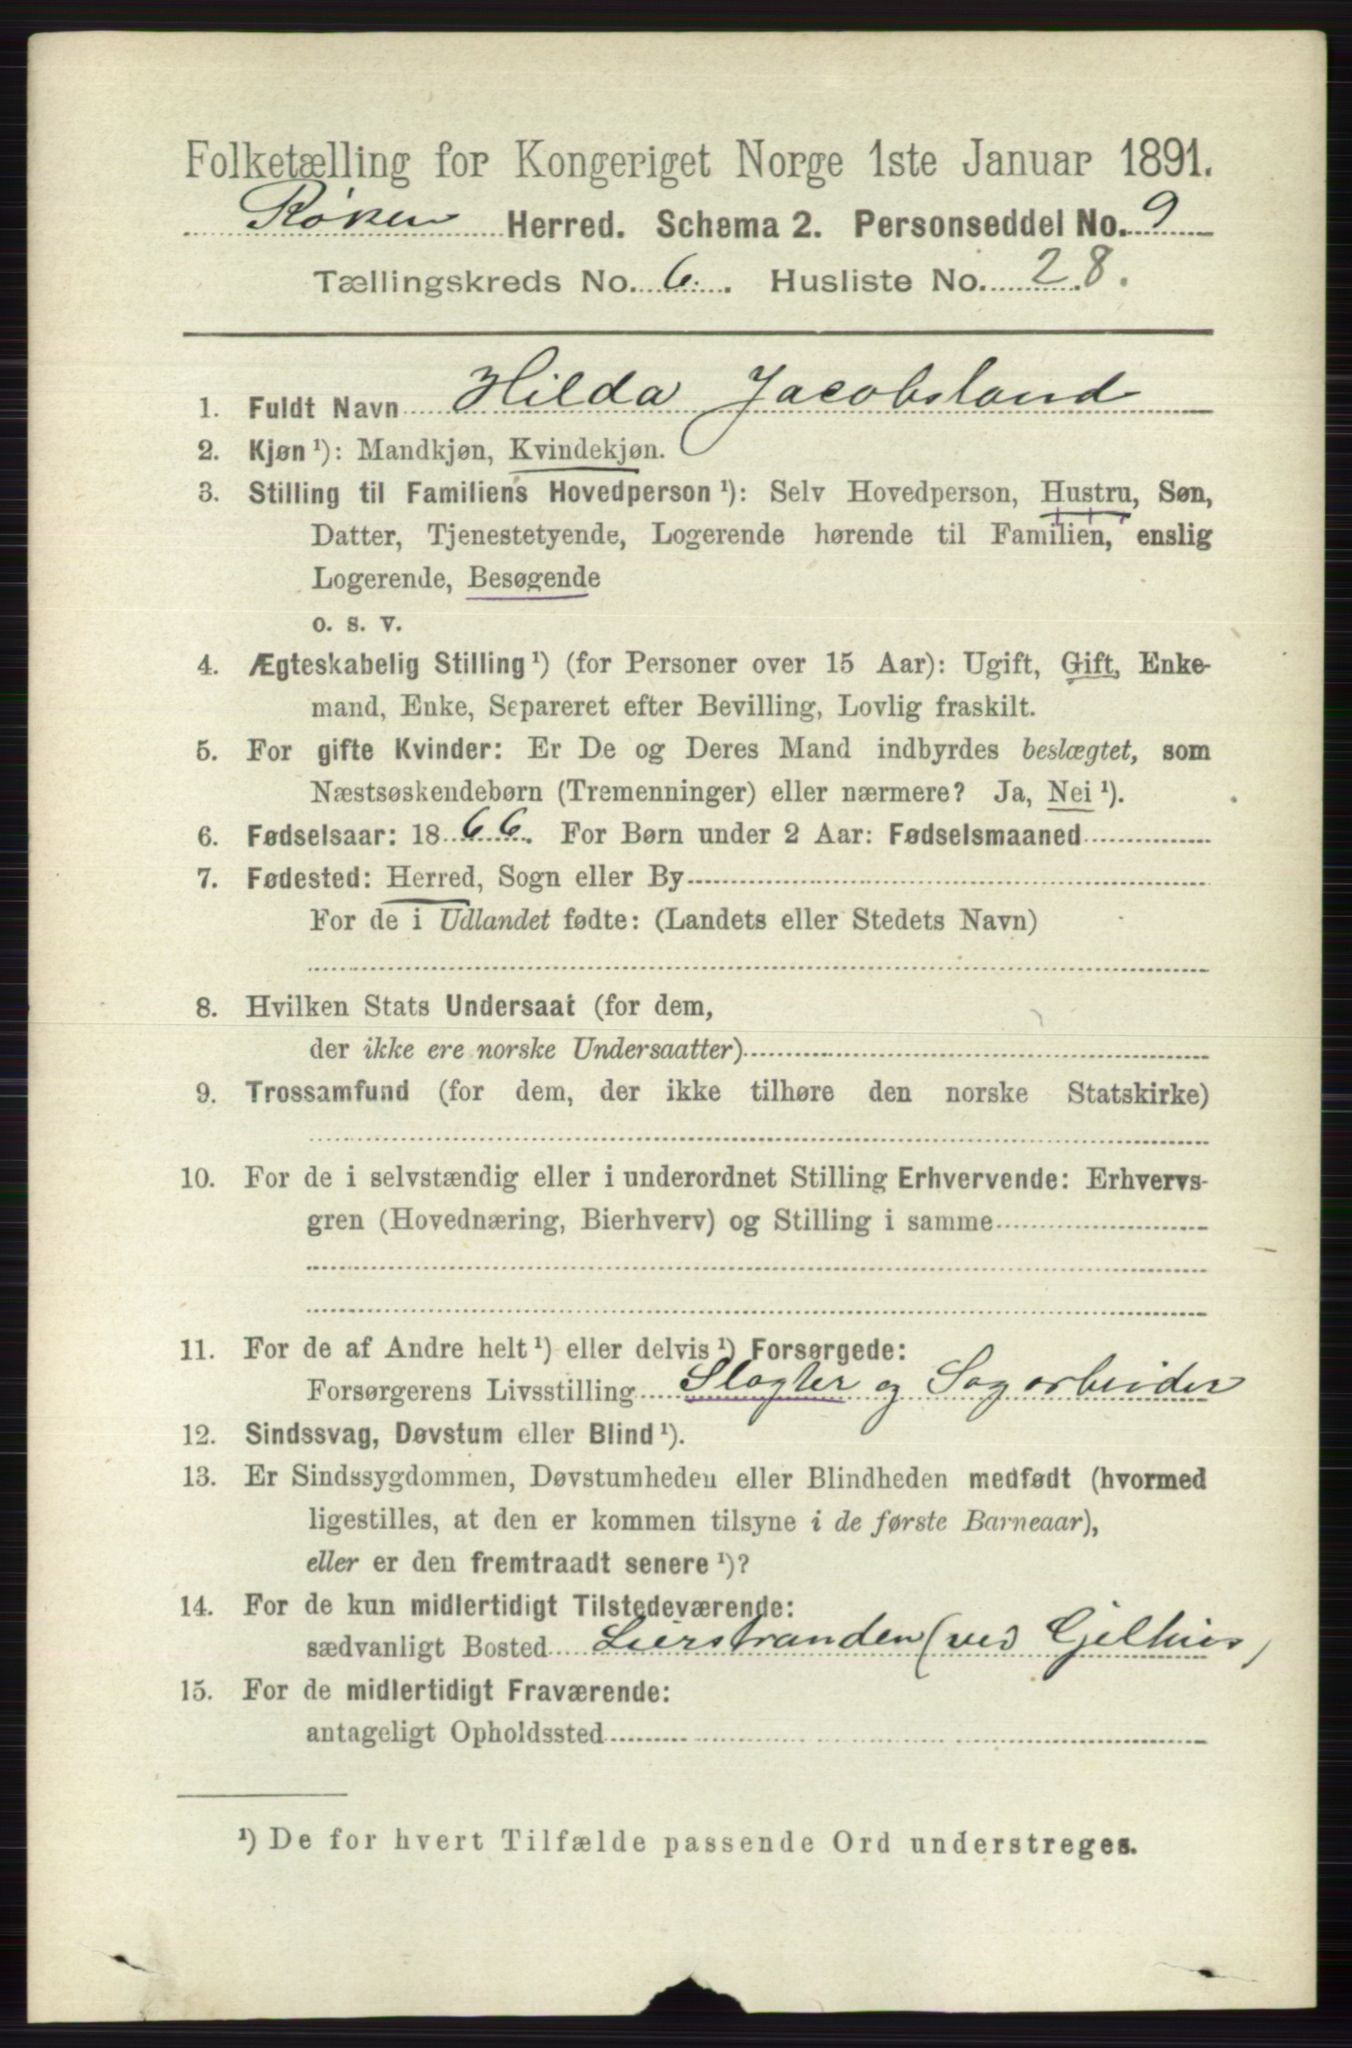 Folketælling for Kongeriget Norge 1ste Januar 1891.
Røken Herred. Schema 2. Personseddel No. 9
Tællingskreds No. 6. Husliste No. 28.
1. Fuldt Navn Hilda Jacobsland
2. Kjøn ¹): Mandkjøn, Kvindekjøn.
3. Stilling til Familiens Hovedperson ¹): Selv Hovedperson, Hustru, Søn,
Datter, Tjenestetyende, Logerende hørende til Familien, enslig
Logerende, Besøgende
o. s. v.
4. Ægteskabelig Stilling ¹) (for Personer over 15 Aar): Ugift, Gift, Enke-
mand, Enke, Separeret efter Bevilling, Lovlig fraskilt.
5. For gifte Kvinder: Er De og Deres Mand indbyrdes beslægtet, som
Næstsøskendebørn (Tremenninger) eller nærmere? Ja, Nei ¹).
6. Fødselsaar: 1866. For Børn under 2 Aar: Fødselsmaaned
7. Fødested: Herred, Sogn eller By
For de i Udlandet fødte: (Landets eller Stedets Navn)
8. Hvilken Stats Undersaat (for dem,
der ikke ere norske Undersaatter)
9. Trossamfund (for dem, der ikke tilhøre den norske Statskirke)
10. For de i selvstændig eller i underordnet Stilling Erhvervende: Erhvervs-
gren (Hovednæring, Bierhverv) og Stilling i samme
11. For de af Andre helt ¹) eller delvis ¹) Forsørgede:
Forsørgerens Livsstilling Slagter og Sagarbeider
12. Sindssvag, Døvstum eller Blind ¹).
13. Er Sindssygdommen, Døvstumheden eller Blindheden medfødt (hvormed
ligestilles, at den er kommen tilsyne i de første Barneaar),
eller er den fremtraadt senere ¹)?
14. For de kun midlertidigt Tilstedeværende:
sædvanligt Bosted Lierstranden (ved Gjelhus)
15. For de midlertidigt Fraværende:
antageligt Opholdssted
¹) De for hvert Tilfælde passende Ord understreges.